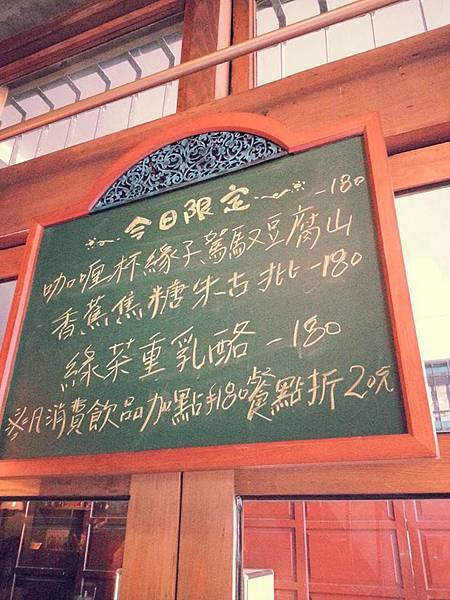 今日限定
咖哩杯緣子駕馭豆腐山-180
香蕉焦糖朱古批-180
綠茶重乳酪-180
※凡消費飲品加點180餐點折20元